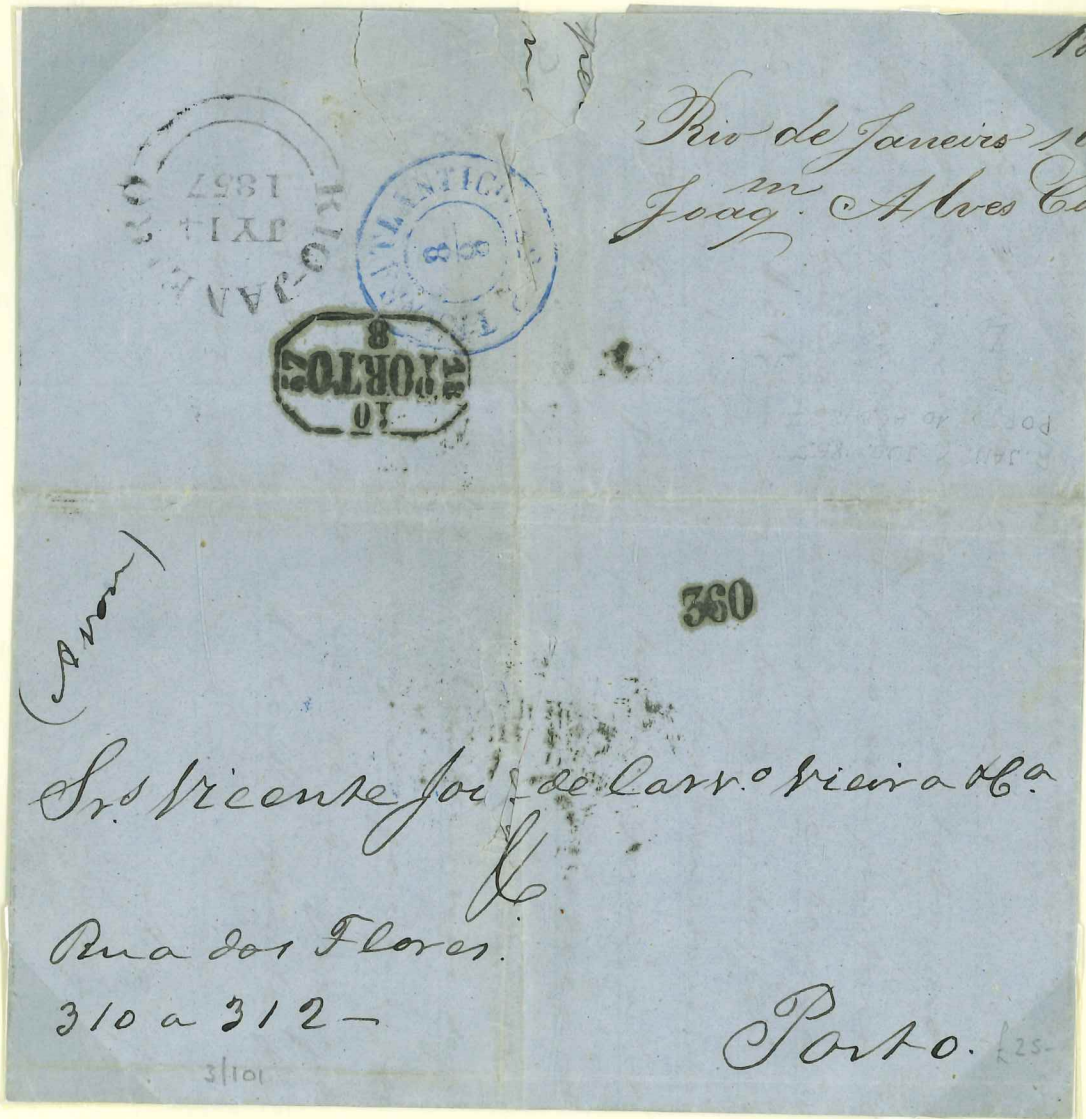 Rio de Janeiro
Joaq.m Alves
RIO-JANEIRO
JY14
1857
TRANSATLANTICO
8
8
PORTO
10
8
18
57
360
(Avon)
Sr.s Vicente José de Carv.o Vieira & C.a
Rua das Flores.
310 a 312 -
Porto.
£25-
3/101